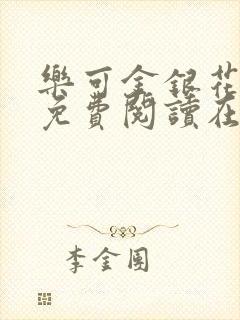 樂可金銀花
免費閱讀在
李金團